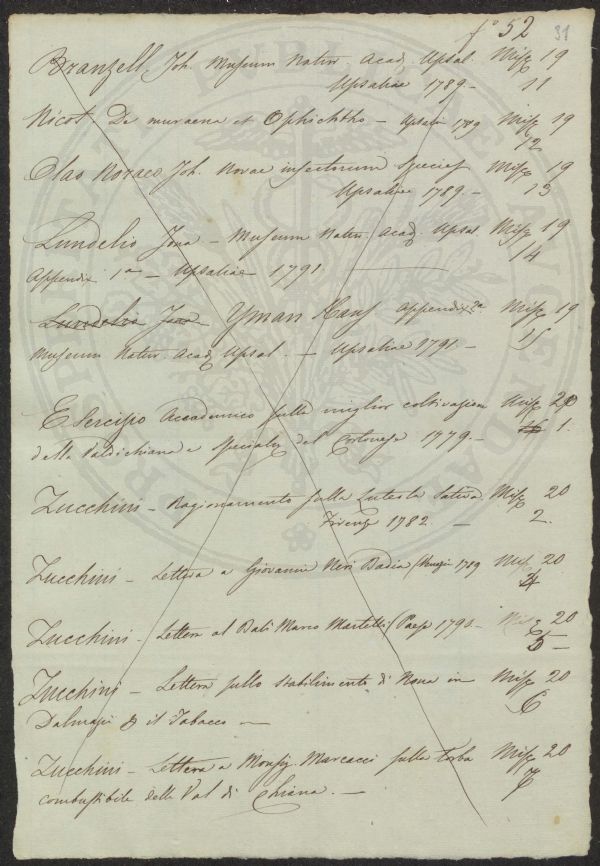 fo 52 31
Branzell. Joh. Museum Natur. Acad. Upsal. Misc 19
Upsaliae 1789 - 11
Nicot. De muraena et Ophichtho - Upsaliae 1789 Misc 19
12
Olao Noraeo Joh. Novae insectorum species Misc 19
Upsaliae 1789. - 13
Lundelio Jona - Museum Natur. Acad. Upsal. Misc 19
14
Appendix 1a - Upsaliae 1791.
Lundelio Jona Yman Hans appendix 2a Misc 19
15
Museum Natur. Acad. Upsal. - Upsaliae 1791 -
Esercizio Accademico sulla miglior coltivazione Misc 20
1.
della Valdichiana e specialm. del Cortonese 1779. -
Zucchini - Ragionamento sulla Sativa Misc 20
Firenze 1782. - 2.
Zucchini - Lettera a Giovanni Neri Badia 1789 Misc 20
Zucchini - Lettera al Balì Marco Martelli 1793 - Misc 20
5 -
Zucchini - Lettera sullo stabilimento di Nona in Misc 20
6
Dalmazia & il Tabacco -
Zucchini - Lettera a Monsig. Marcacci sulla torba Misc 20
7
combustibile della Val di Chiana. -